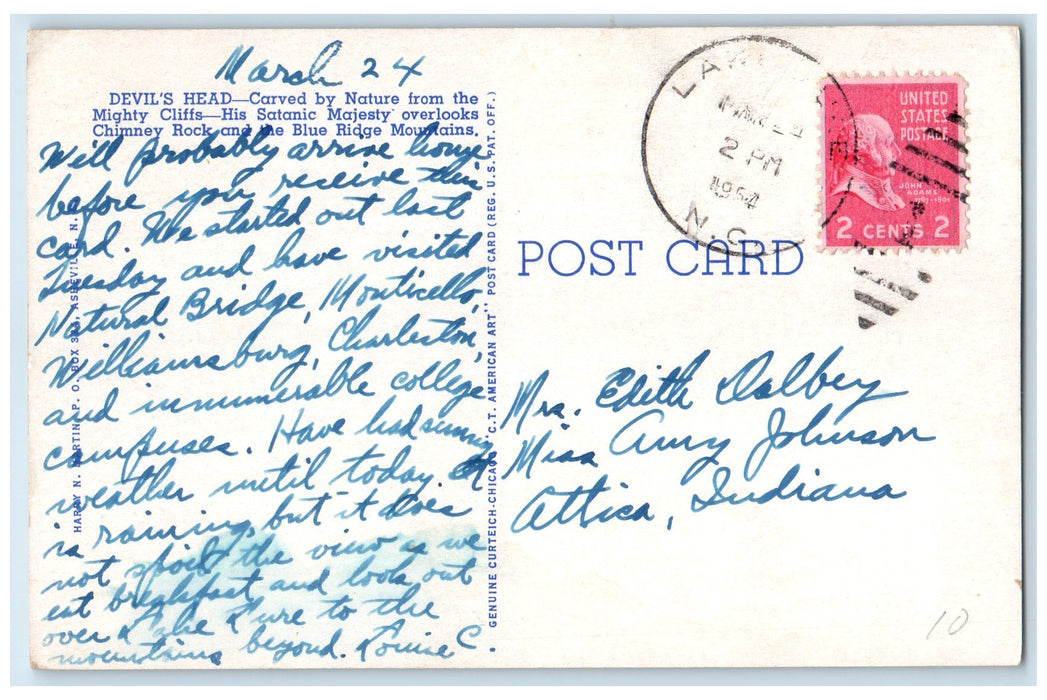 March 24
DEVIL'S HEAD—Carved by Nature from the
Mighty Cliffs—His Satanic Majesty overlooks
Chimney Rock and the Blue Ridge Mountains.
Will probably arrive home
before you receive this
card. We started out last
Tuesday and have visited
Natural Bridge, Monticello,
Williamsburg, Charleston,
and innumerable college
campuses. Have had sunny
weather until today. It
is raining, but it does
not spoil the view as we
eat breakfast and look out
over Lake Lure to the
mountains beyond. Louise C.
HARRY N. MARTIN, P. O. BOX ASHEVILLE, N.
GENUINE CURTEICH-CHICAGO "C.T. AMERICAN ART" POST CARD (REG. U.S. PAT. OFF.)
POST CARD
LA
MAR
2 PM
1954
N.C.
UNITED
STATES
POSTAGE
JOHN
ADAMS
2 CENTS 2
Mrs. Edith Dalbey
Miss Amy Johnson
Attica, Indiana
10